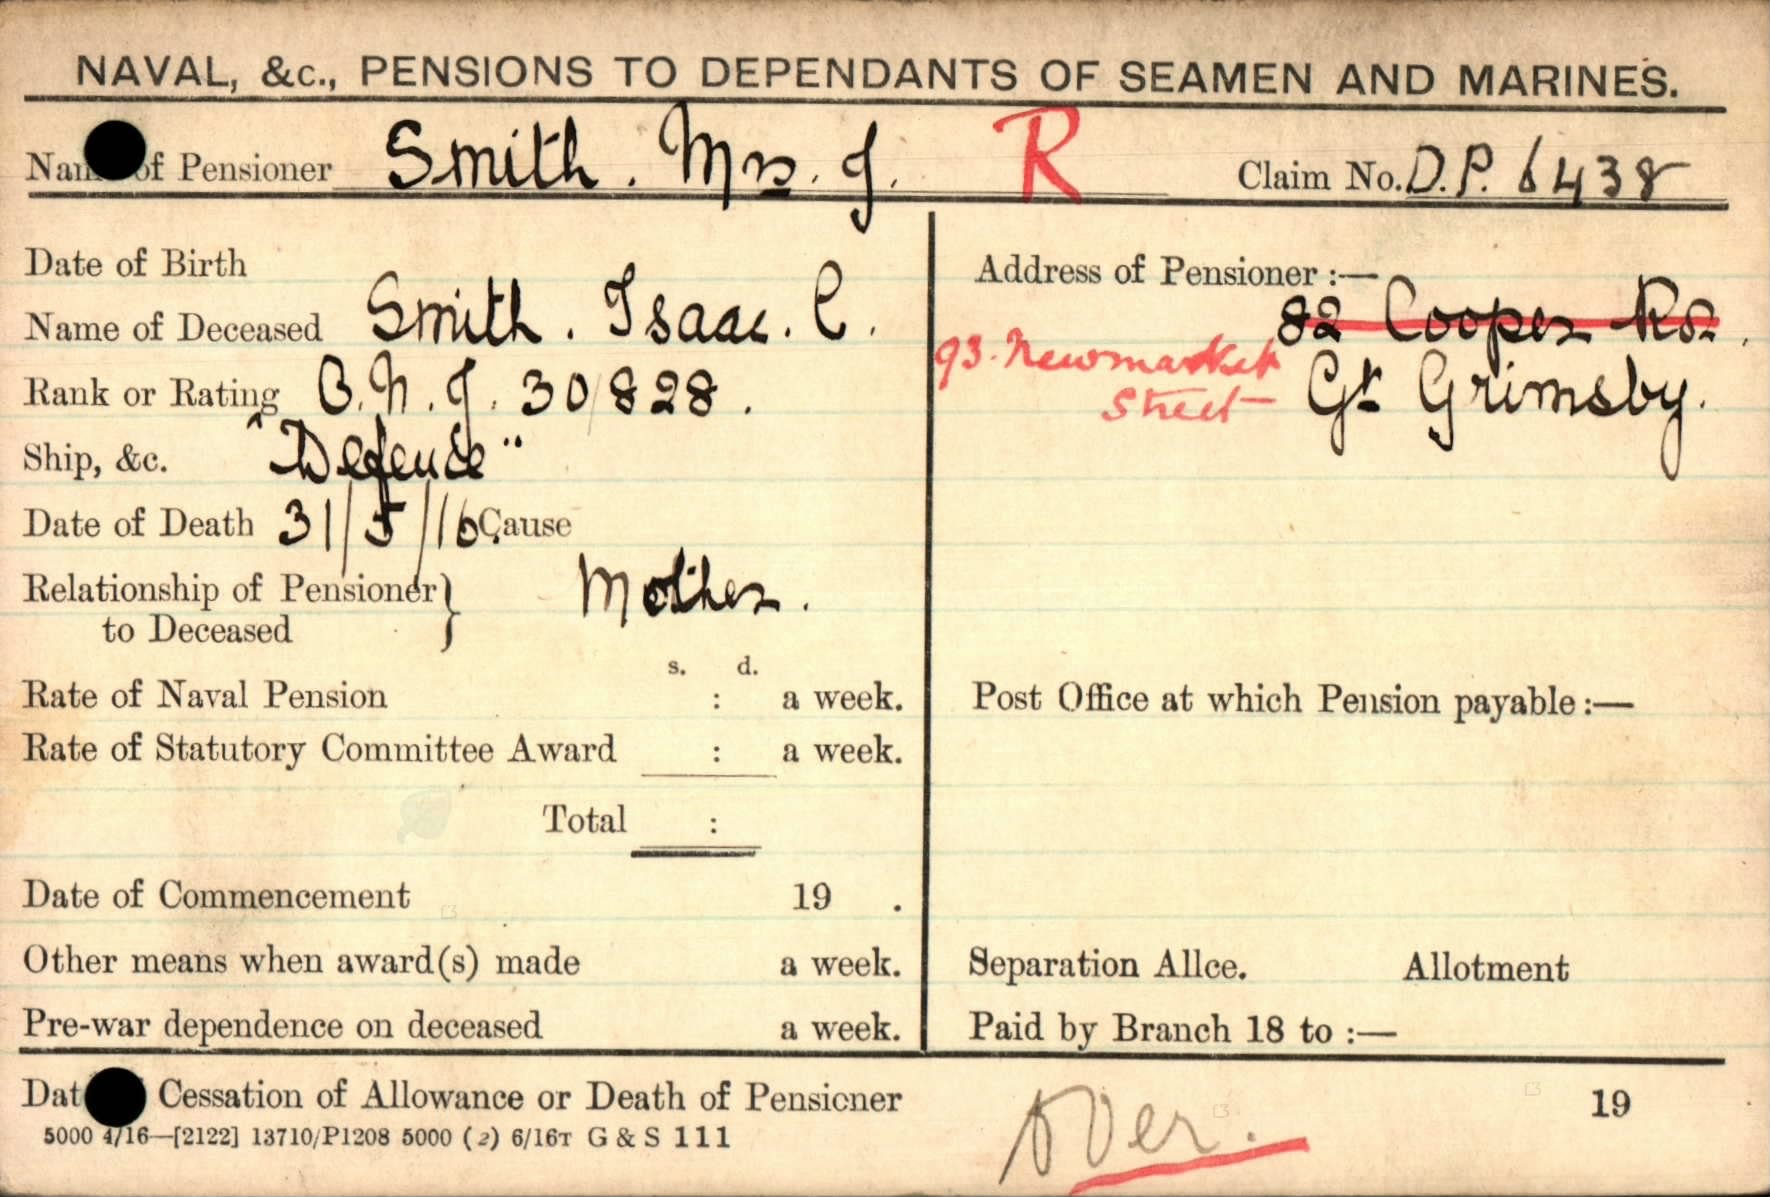 NAVAL, &c., PENSIONS TO DEPENDANTS OF SEAMEN AND MARINES.
Name of Pensioner Smith. Mrs. J. R Claim No. D.P. 6438
Date of Birth
Name of Deceased Smith. Isaac. C.
Rank or Rating O.N. J. 30828.
Ship, &c. "Defence"
Date of Death 31/5/16. Cause
Relationship of Pensioner } Mother.
to Deceased
s. d.
Rate of Naval Pension : a week.
Rate of Statutory Committee Award : a week.
Total :
Date of Commencement 19 .
Other means when award(s) made a week.
Pre-war dependence on deceased a week.
Address of Pensioner :—
82 Cooper Rd.
93. Newmarket
Street Gt Grimsby.
Post Office at which Pension payable :—
Separation Allce. Allotment
Paid by Branch 18 to :—
Dat Cessation of Allowance or Death of Pensioner 19
5000 4/16—[2122] 13710/P1208 5000 (2) 6/16T G & S 111
Over.